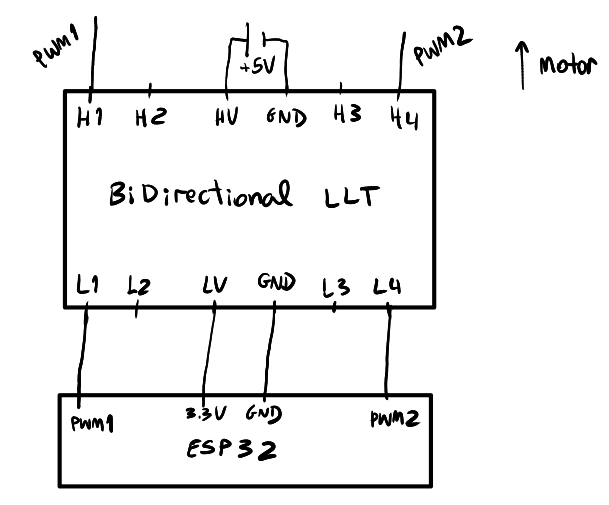 PWM1
PWM2
+5V
Motor
H1 H2 HV GND H3 H4
BiDirectional LLT
L1 L2 LV GND L3 L4
PWM1 3.3V GND PWM2
ESP32